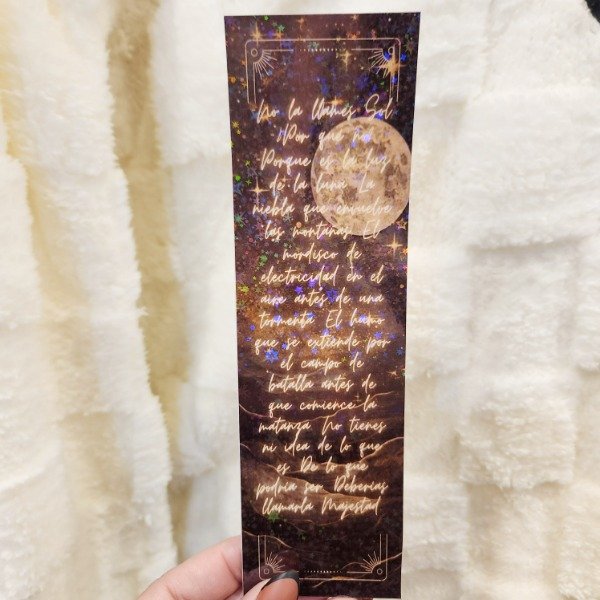 No la llames Sol
Por qué no
Porque es la luz
de la luna La
niebla que envuelve
las montañas El
mordisco de
electricidad en el
aire antes de una
tormenta El humo
que se extiende por
el campo de
batalla antes de
que comience la
matanza No tienes
ni idea de lo que
es De lo que
podría ser Deberías
llamarla Majestad